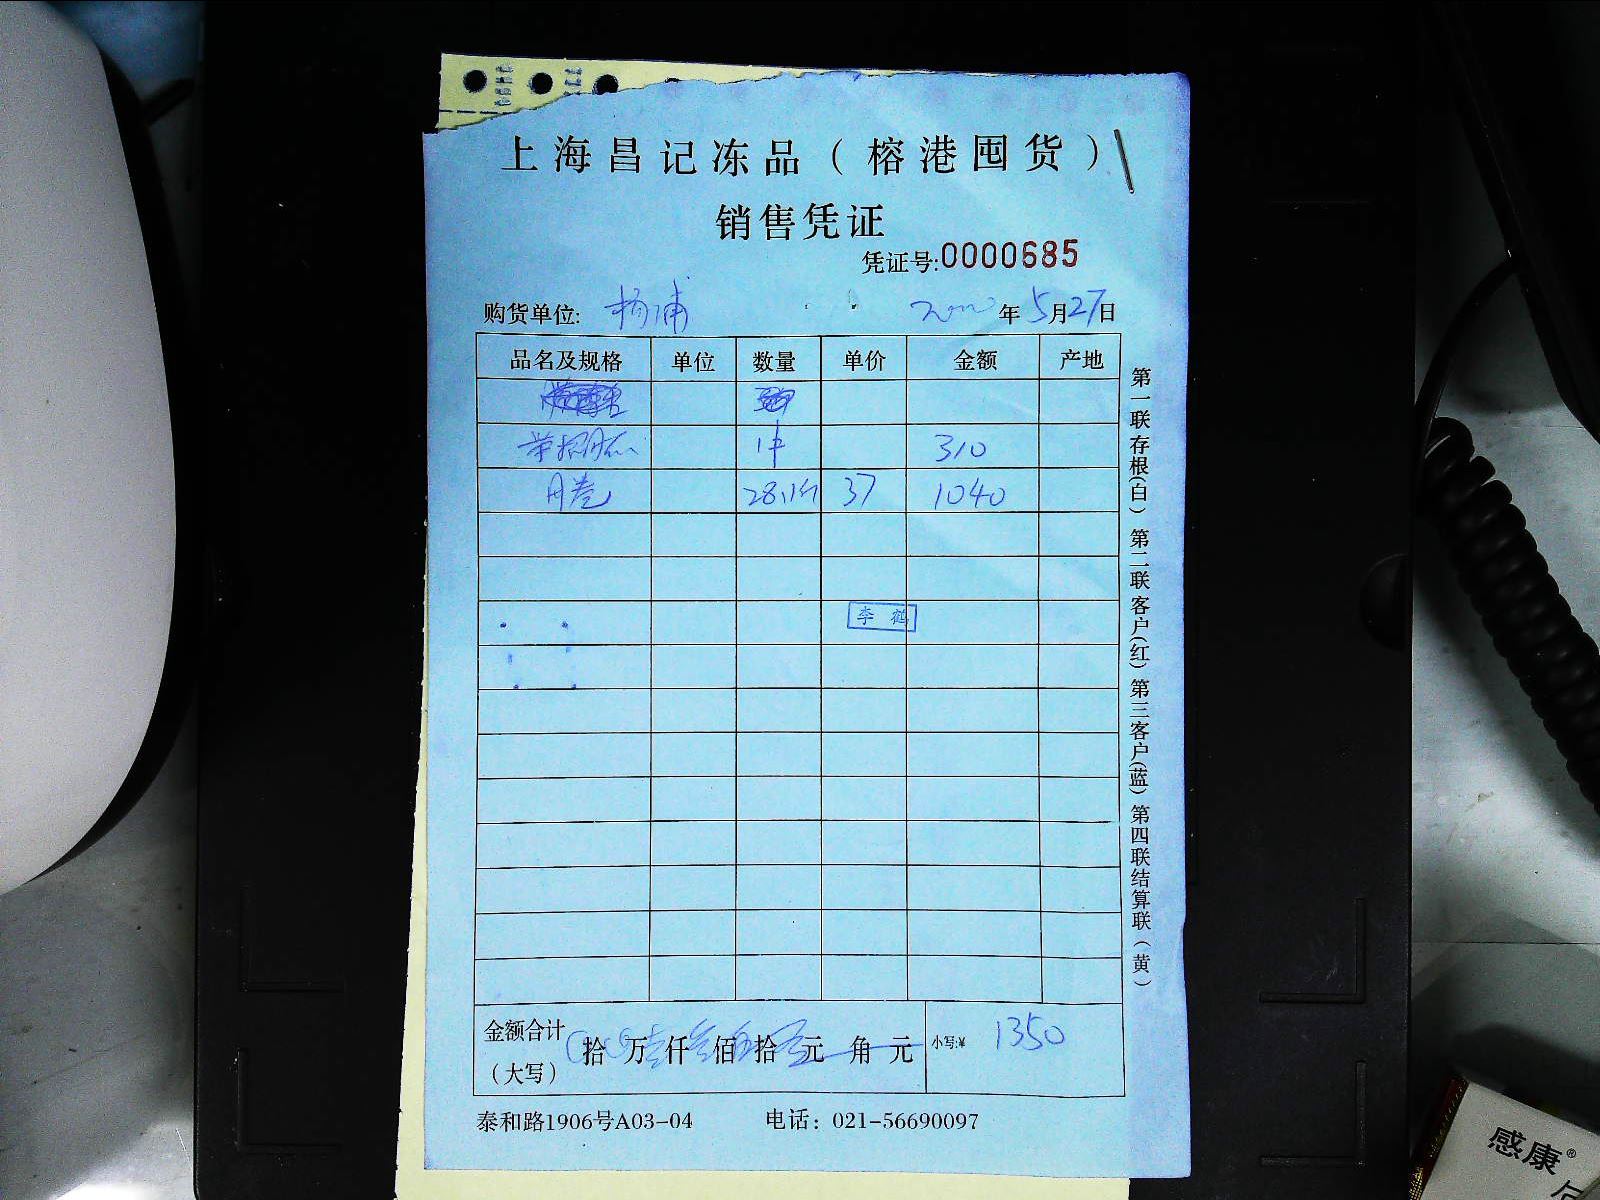 上海昌记冻品（榕港囤货）
销售凭证
凭证号:0000685
购货单位: 杨浦 年 5月27日
品名及规格 单位 数量 单价 金额 产地
1件 310
月卷 37 1040
李 鹤
金额合计（大写） 拾 万 仟 佰 拾 元 角 元 小写:¥ 1350
泰和路1906号A03-04 电话：021-56690097
第一联存根(白) 第二联客户(红) 第三客户(蓝) 第四联结算联(黄)
感康®